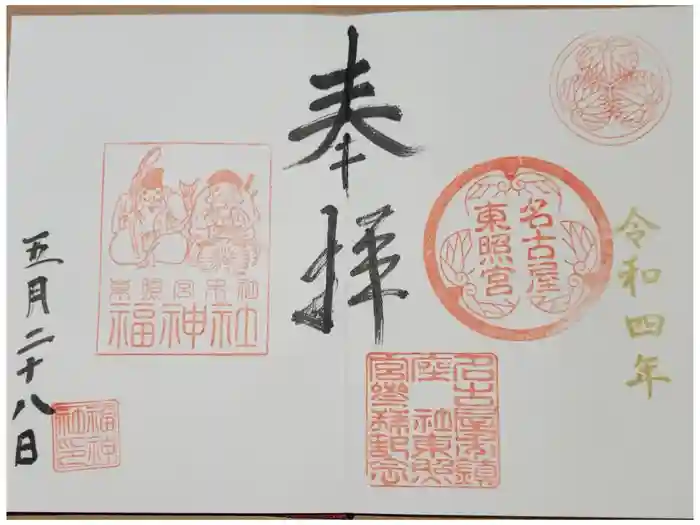 令和四年
名古屋
東照宮
奉拝
名古屋東鎮
座 社東照
宮参拝記念
東照宮末社
福神社
福神
社印
五月二十八日